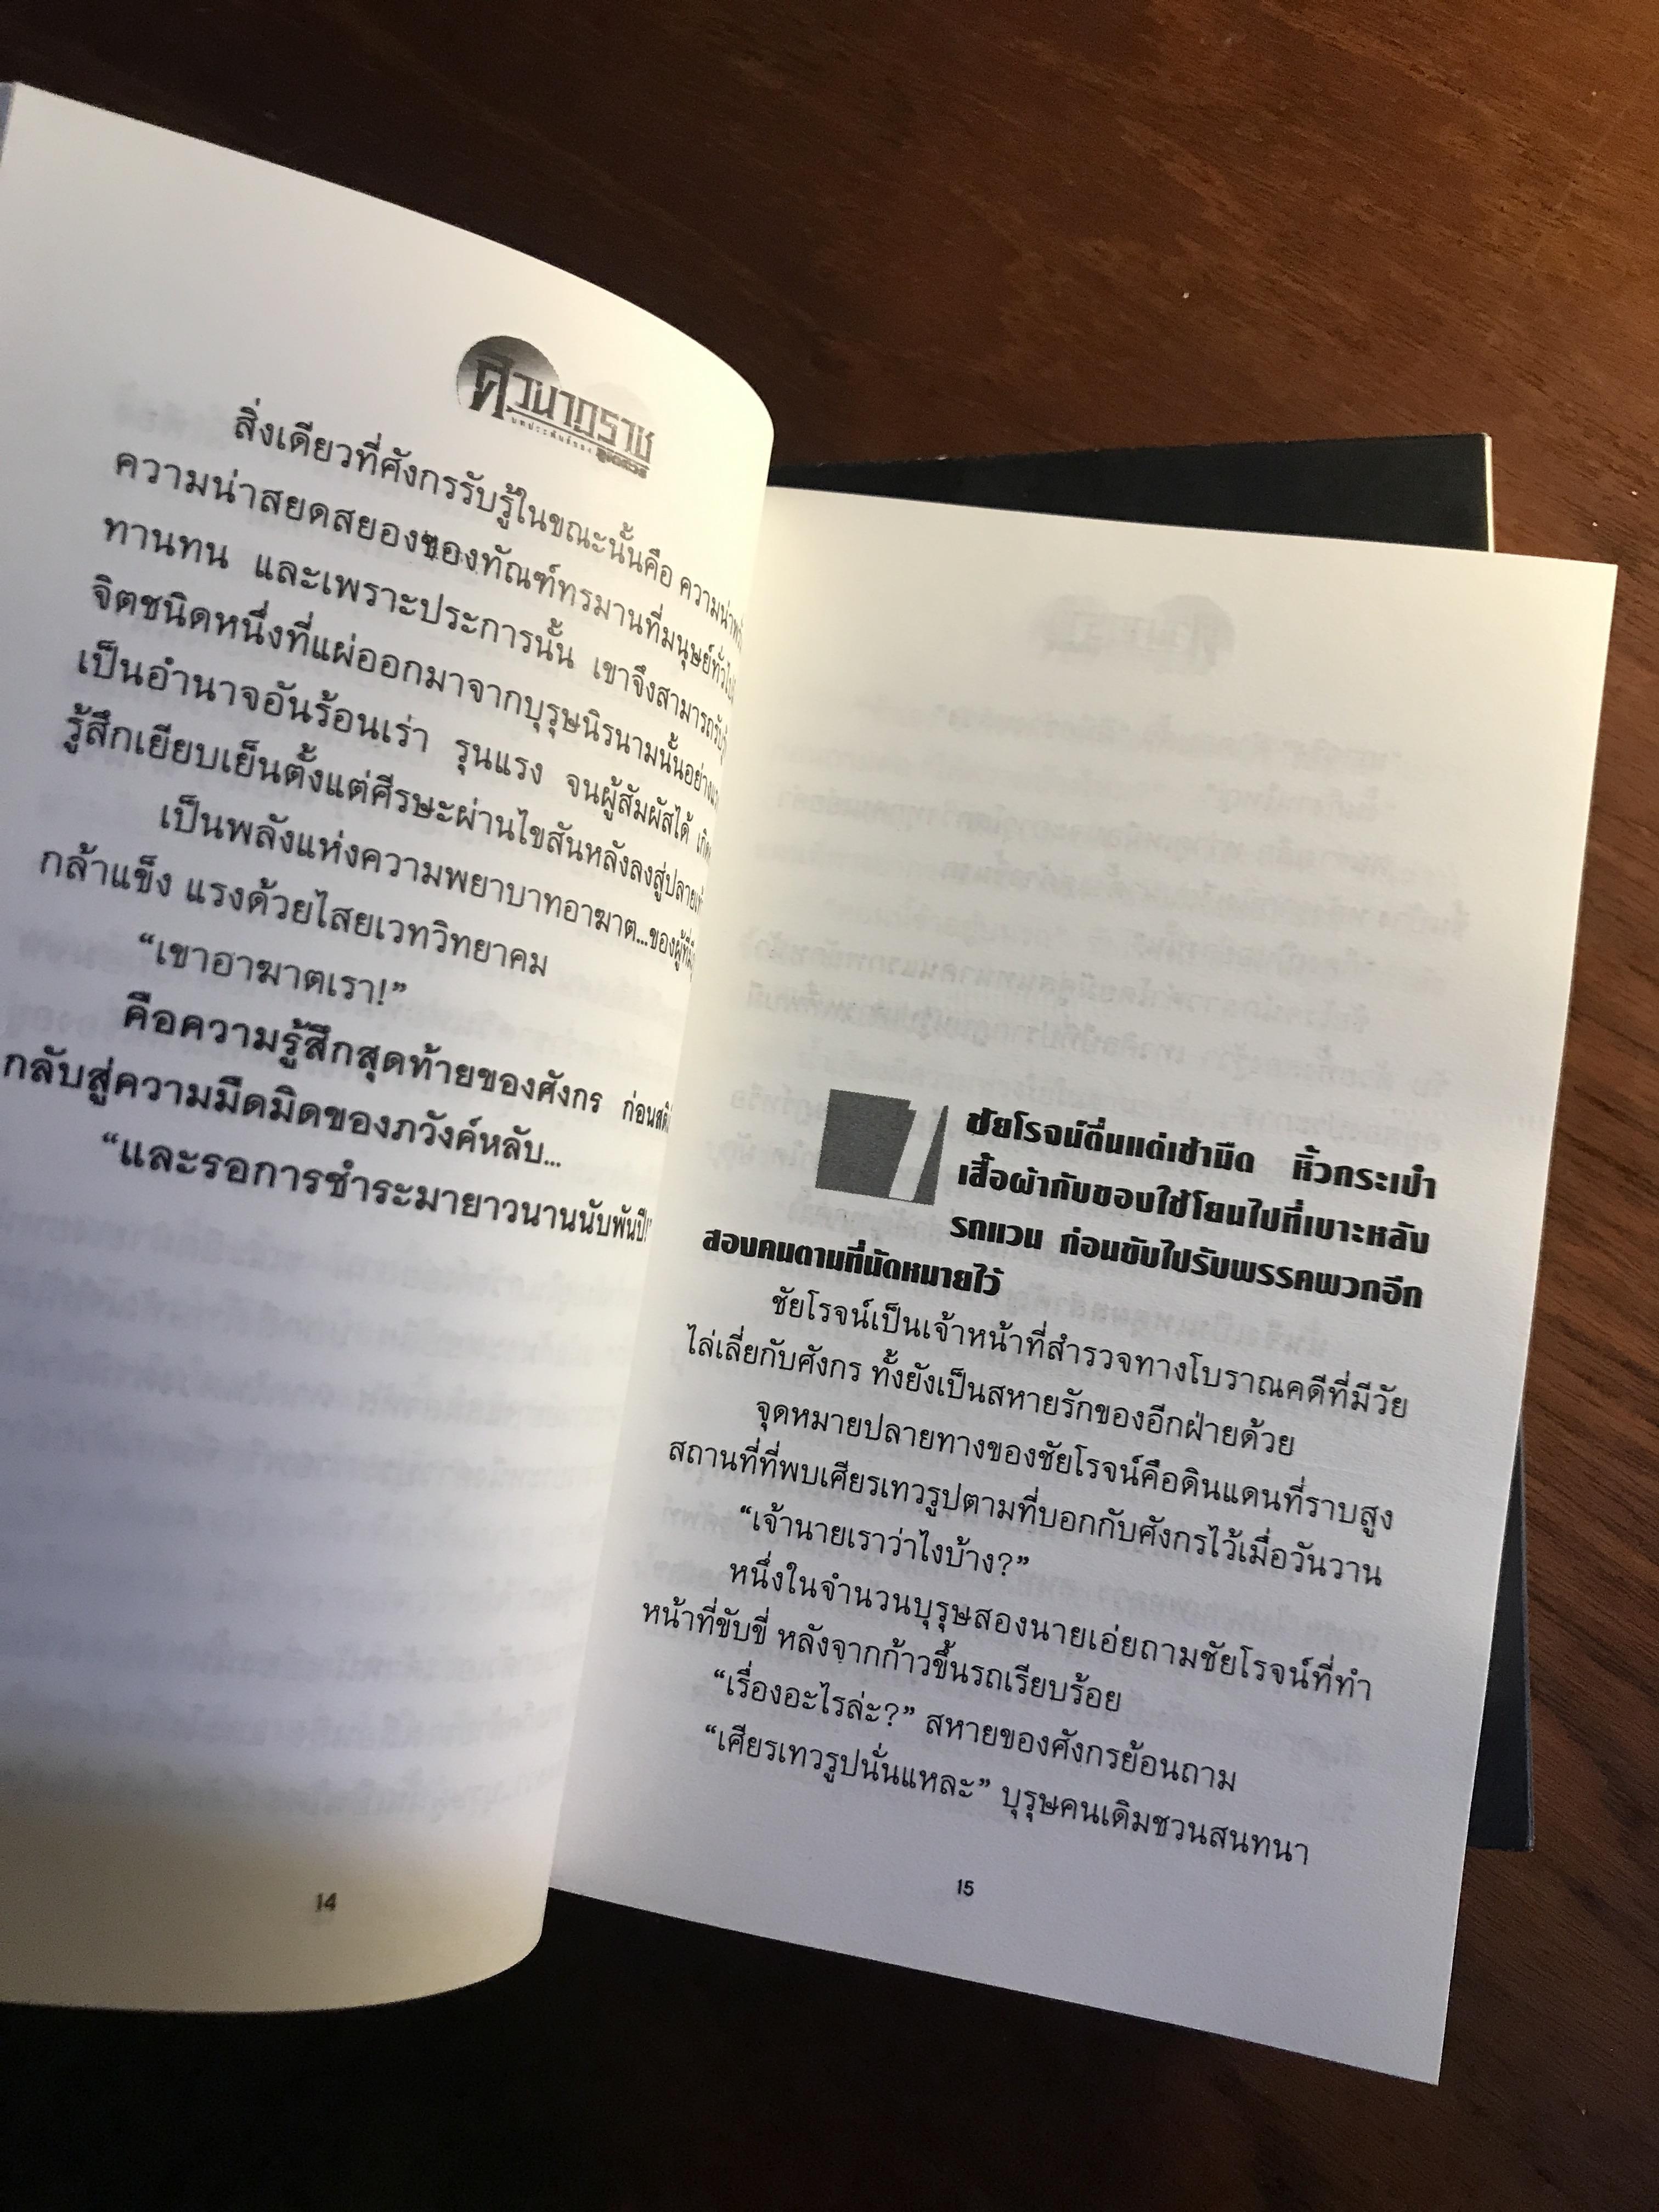 ศิวนาฏราช
บทประพันธ์ของ
สิ่งเดียวที่ศังกรรับรู้ในขณะนั้นคือ
ความน่าสยดสยองของทัณฑ์ทรมานที่มนุษย์ทั่วไป
ทานทน และเพราะประการนั้น เขาจึงสามารถรับรู้
จิตชนิดหนึ่งที่แผ่ออกมาจากบุรุษนิรนามนั้นอย่าง
เป็นอำนาจอันร้อนเร่า รุนแรง จนผู้สัมผัสได้
รู้สึกเยียบเย็นตั้งแต่ศีรษะผ่านไขสันหลังลงสู่ปลาย
เป็นพลังแห่งความพยาบาทอาฆาต...ของผู้ที่
กล้าแข็ง แรงด้วยไสยเวทวิทยาคม
“เขาอาฆาตเรา!”
คือความรู้สึกสุดท้ายของศังกร ก่อน
กลับสู่ความมืดมิดของภวังค์หลับ...
“และรอการชำระมายาวนานนับพันปี!”
14
1
ชัยโรจน์ตื่นแต่เช้ามืด หิ้วกระเป๋า
เสื้อผ้ากับของใช้โยนไปที่เบาะหลัง
รถแวน ก่อนขับไปรับพรรคพวกอีก
สองคนตามที่นัดหมายไว้
ชัยโรจน์เป็นเจ้าหน้าที่สำรวจทางโบราณคดีที่มีวัย
ไล่เลี่ยกับศังกร ทั้งยังเป็นสหายรักของอีกฝ่ายด้วย
จุดหมายปลายทางของชัยโรจน์คือดินแดนที่ราบสูง
สถานที่ที่พบเศียรเทวรูปตามที่บอกกับศังกรไว้เมื่อวันวาน
“เจ้านายเราว่าไงบ้าง?”
หนึ่งในจำนวนบุรุษสองนายเอ่ยถามชัยโรจน์ที่ทำ
หน้าที่ขับขี่ หลังจากก้าวขึ้นรถเรียบร้อย
“เรื่องอะไรล่ะ?” สหายของศังกรย้อนถาม
“เศียรเทวรูปนั่นแหละ” บุรุษคนเดิมชวนสนทนา
15